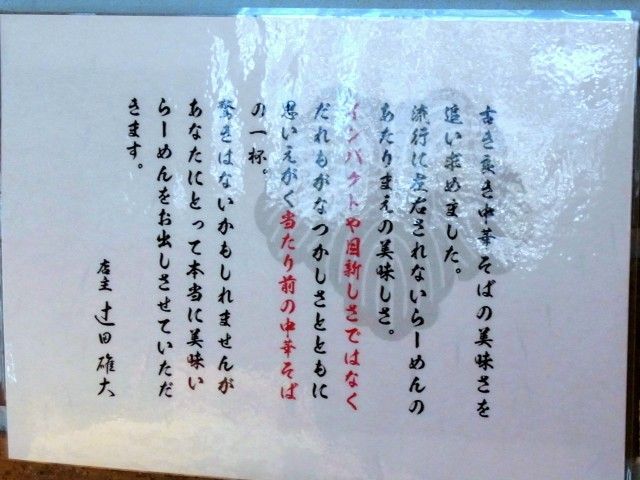 古き良き中華そばの美味さを
追い求めました。
流行に左右されないらーめんの
あたりまえの美味しさ。
インパクトや目新しさではなく
だれもがなつかしさとともに
思いえがく当たり前の中華そば
の一杯。
驚きはないかもしれませんが
あなたにとって本当に美味い
らーめんをお出しさせていただ
きます。
店主 辻田雄大